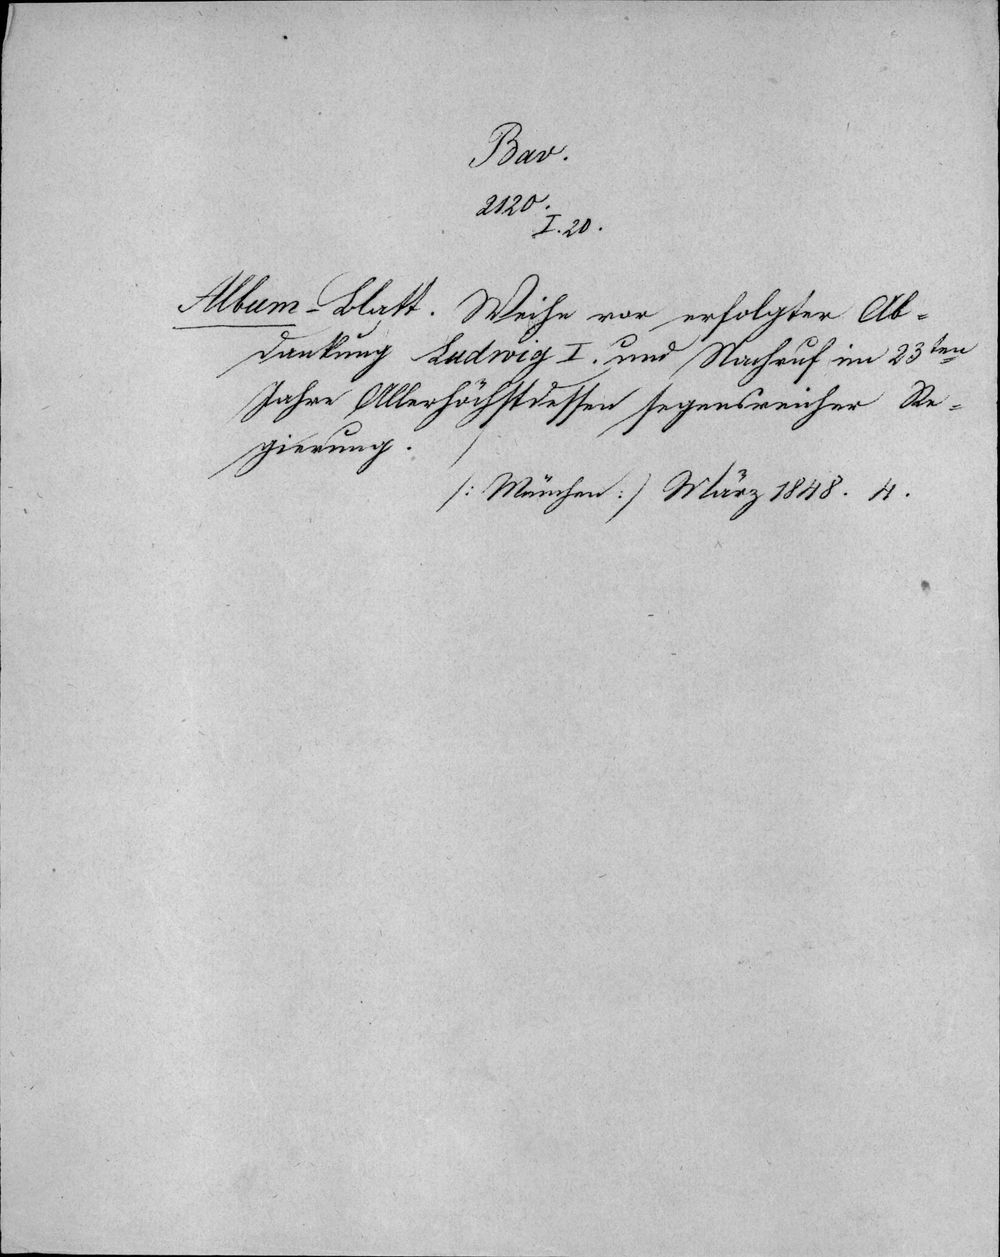 Bav.
2120.
I. 20.
Album-Blatt. Weihe vor erfolgter Ab-
dankung Ludwig I. und Nachruf im 23ten
Jahre Allerhöchstdessen segensreicher Re-
gierung.
/: München :/ März 1848. 4.